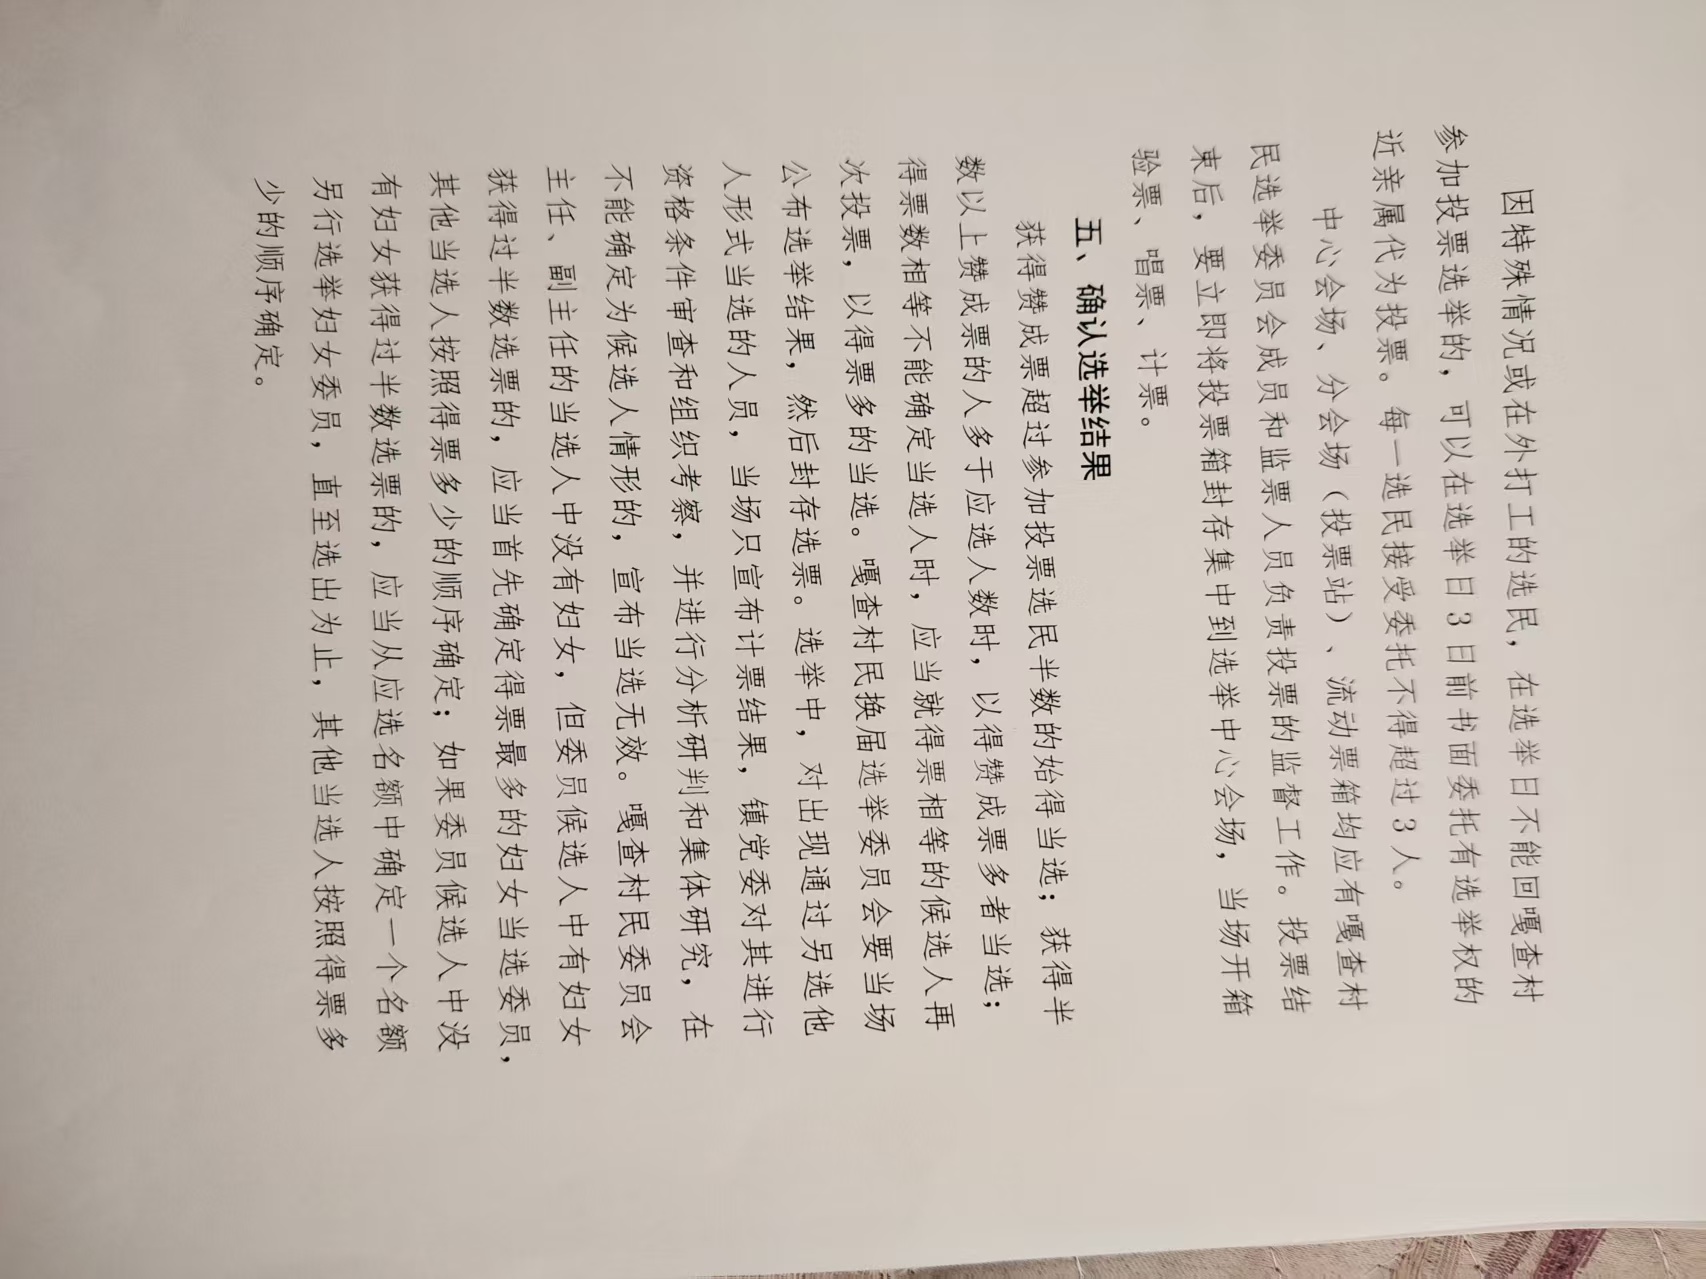 因特殊情况或在外打工的选民，在选举日不能回嘎查村
参加投票选举的，可以在选举日3日前书面委托有选举权的
近亲属代为投票。每一选民接受委托不得超过3人。
中心会场、分会场（投票站）、流动票箱均应有嘎查村
民选举委员会成员和监票人员负责投票的监督工作。投票结
束后，要立即将投票箱封存集中到选举中心会场，当场开箱
验票、唱票、计票。
五、确认选举结果
获得赞成票超过参加投票选民半数的始得当选；获得半
数以上赞成票的人多于应选人数时，以得赞成票多者当选；
得票数相等不能确定当选人时，应当就得票相等的候选人再
次投票，以得票多的当选。嘎查村民换届选举委员会要当场
公布选举结果，然后封存选票。选举中，对出现通过另选他
人形式当选的人员，当场只宣布计票结果，镇党委对其进行
资格条件审查和组织考察，并进行分析研判和集体研究，在
不能确定为候选人情形的，宣布当选无效。嘎查村民委员会
主任、副主任的当选人中没有妇女，但委员候选人中有妇女
获得过半数选票的，应当首先确定得票最多的妇女当选委员，
其他当选人按照得票多少的顺序确定；如果委员候选人中没
有妇女获得过半数选票的，应当从应选名额中确定一个名额
另行选举妇女委员，直至选出为止，其他当选人按照得票多
少的顺序确定。